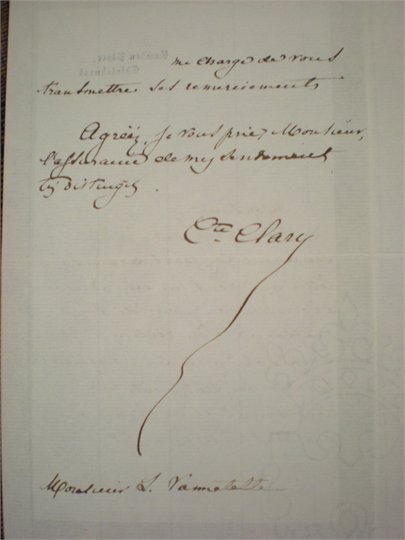 me charge de vous
transmettre ses remerciements
Agréez, je vous prie, Monsieur,
l'assurance de mes sentiments
très distingués.
Cte Clary
Monsieur L.